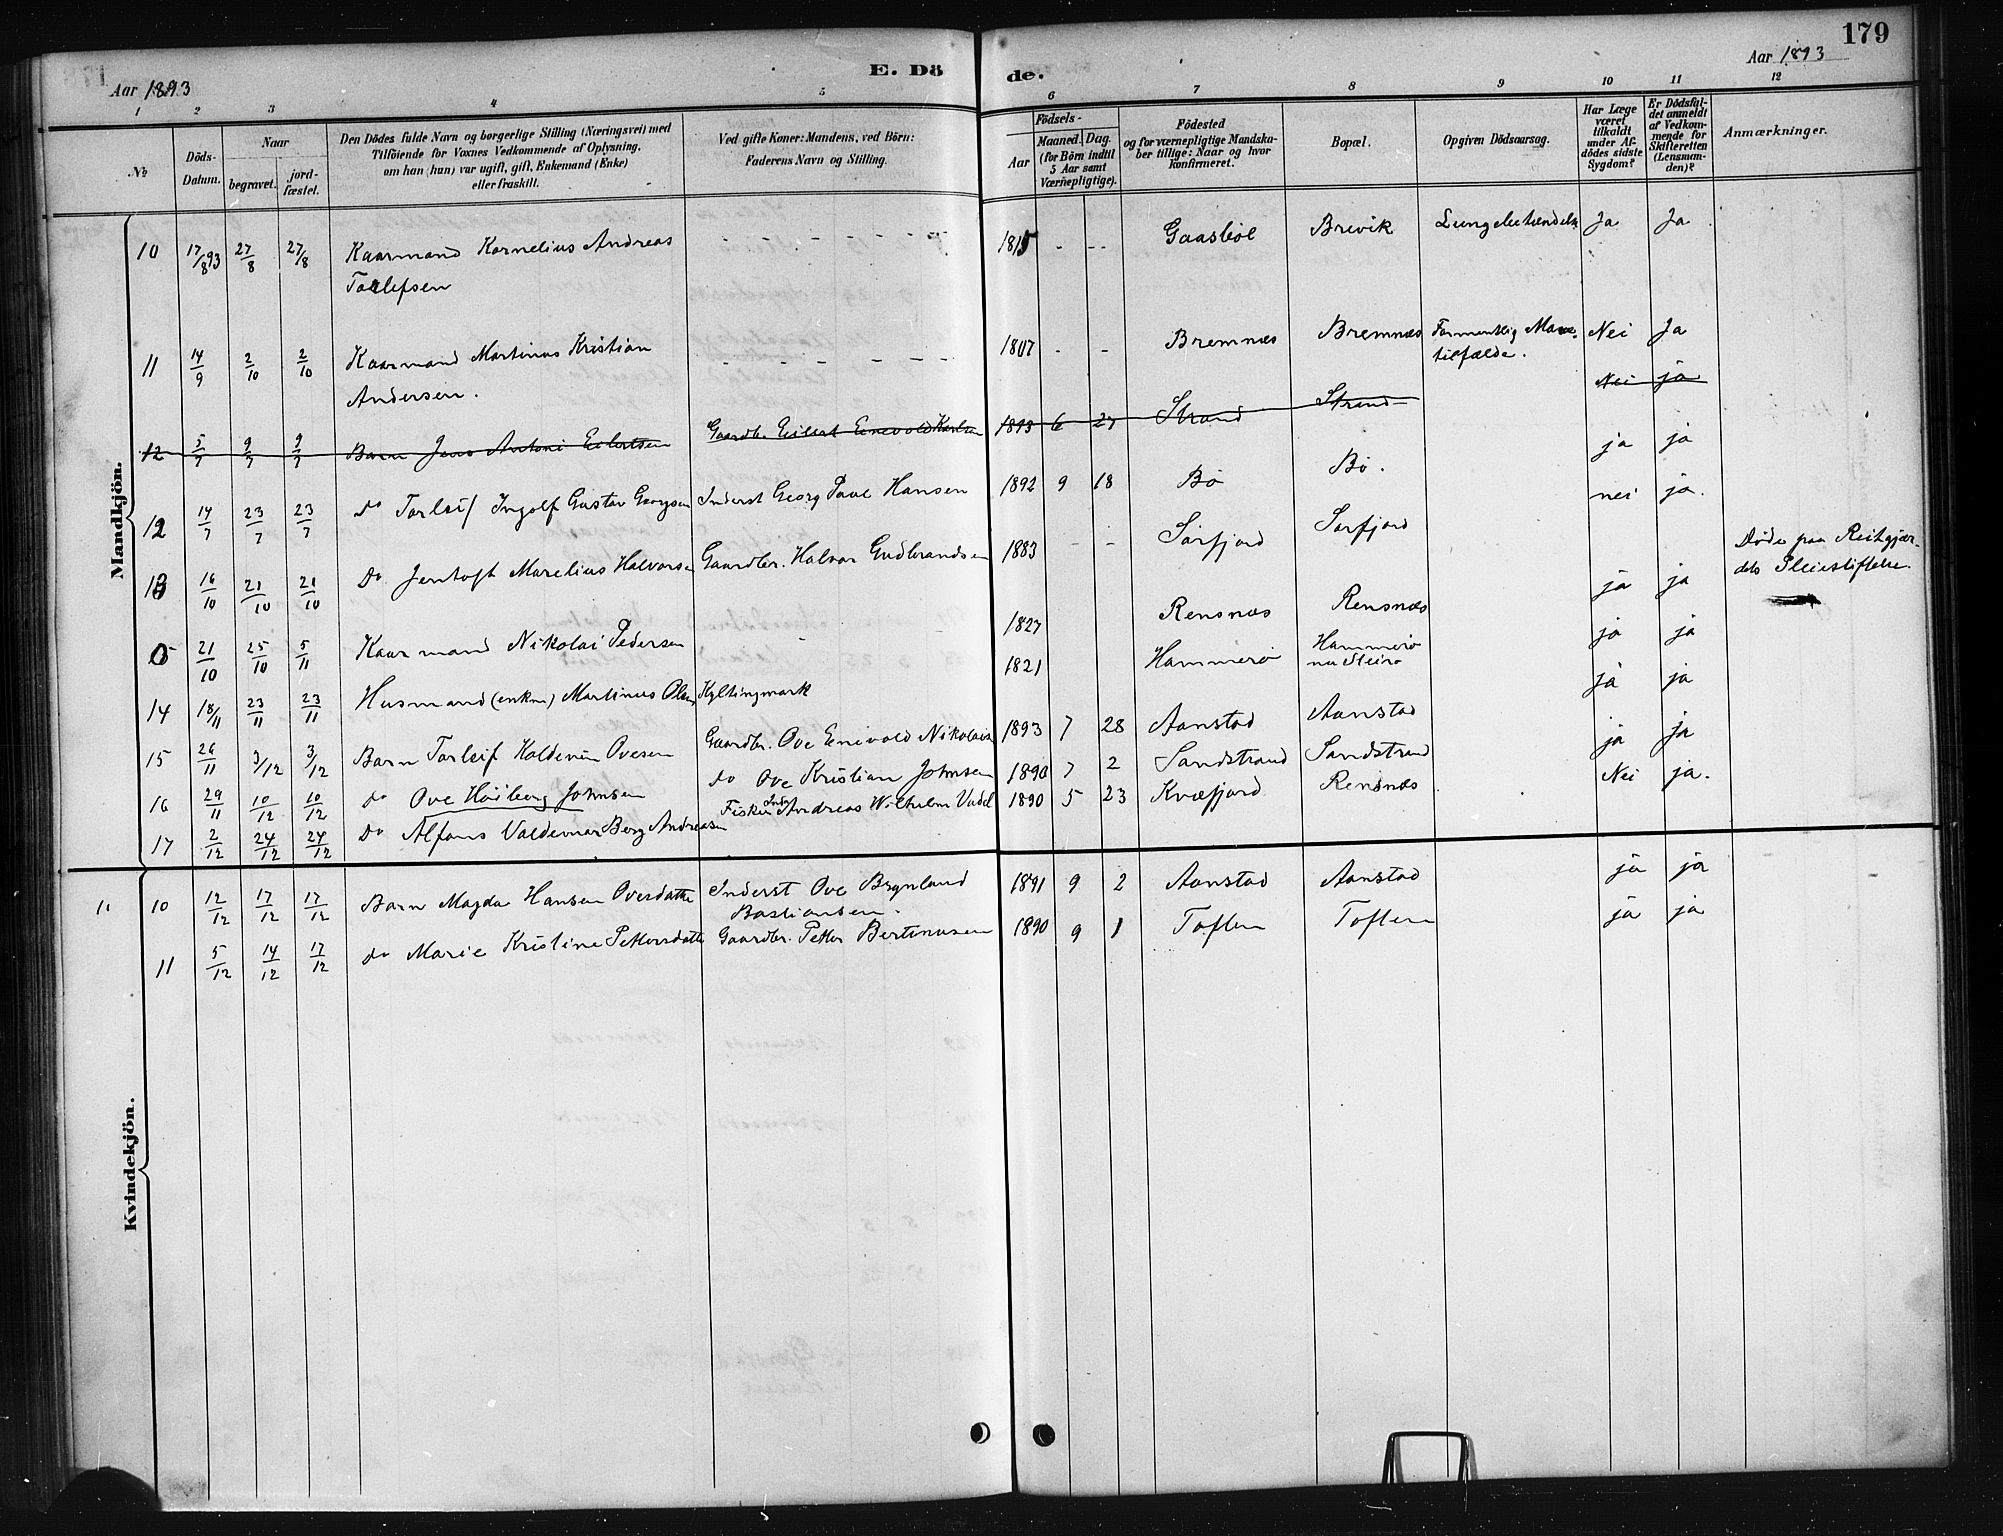 179
Aar 1893
E. Dö de.
Aar 1893
1 2 3 4 5 6 7 8 9 10 11 12
No
Döds-Datum.
Naar
begravet.
jord-fæstet.
Den Dödes fulde Navn og borgerlige Stilling (Næringsvei) med
Tilföiende for Voxnes Vedkommende af Oplysning,
om han (hun) var ugift, gift, Enkemand (Enke)
eller fraskilt.
Ved gifte Koner: Mandens, ved Börn:
Faderens Navn og Stilling.
Födsels-
Aar
Maaned. Dag.
(for Börn indtil
5 Aar samt
Værnepligtige).
Födested
og for værnepligtige Mandska-
ber tillige: Naar og hvor
konfirmeret.
Bopæl.
Opgiven Dödsaarsag.
Har Læge
været
tilkaldt
under Af-
dödes sidste
Sygdom?
Er Dödsfal-
det anmeldt
af Vedkom-
mende for
Skifteretten
(Lensman-
den)?
Anmærkninger.
Mandkjön.
10 17/8 93 27/8 27/8 Kaarmand Kornelius Andreas - - - - - - 1815 - - - Gaasbøl Brevik Lungebetændelse Ja Ja
Tollefsen
11 14/9 2/10 2/10 Kaarmand Martinus Kristian - - - - - - 1807 - - Bremnæs Bremnæs Formentlig Nei Ja
Andersen. tilfælde.
12 5/7 9/7 9/7 Barn Jens Antoni Eilertsen Gaardbr. Eilert Enevold Karlsen 1893 6 27 Strand Strand Nei ja
12 14/7 23/7 23/7 do Torleif Ingolf Gustav Georgsen Inderst Georg Paul Hansen 1892 9 18 Bø Bø. ja ja
13 16/10 21/10 21/10 Do Jentoft Marelius Halvorsen Gaardbr. Halvor Gudbrandsen 1883 - - Sørfjord Sørfjord nei ja.
0 21/10 25/10 5/11 Kaarmand Nikolai Pedersen - 1827 Rensnæs Rensnæs ja ja Døde paa Reitgjær-
dets Pleiestiftelse.
14 18/11 23/11 23/11 Husmand (enkm) Martinus Olsen Hyltingmark 1821 Hammerø Hammerø ja ja
15 26/11 3/12 3/12 Barn Torleif Haldevin Ovesen Gaardbr. Ove Enevold Nikolais 1893 7 28 Aanstad Aanstad ja ja
16 29/11 10/12 10/12 do Ove Høiberg Johnsen do Ove Kristian Johnsen 1890 7 2 Sandstrand Sandstrand ja ja
17 2/12 24/12 24/12 Do Alfons Valdemar Berg Andreasen Fisker Inds Andreas Wilhelm 1890 5 23 Kvæfjord Rensnæs Nei ja.
Kvindekjön.
11 10 12/12 17/12 17/12 Barn Magda Hansen Ovesdatter Inderst Ove Brynland 1891 9 2 Aanstad Aanstad ja ja
Bastiansen.
11 5/12 14/12 17/12 do Marie Kristine Pettersdatter Gaardbr. Petter Bertinusen 1890 9 1 Toften Toften ja ja